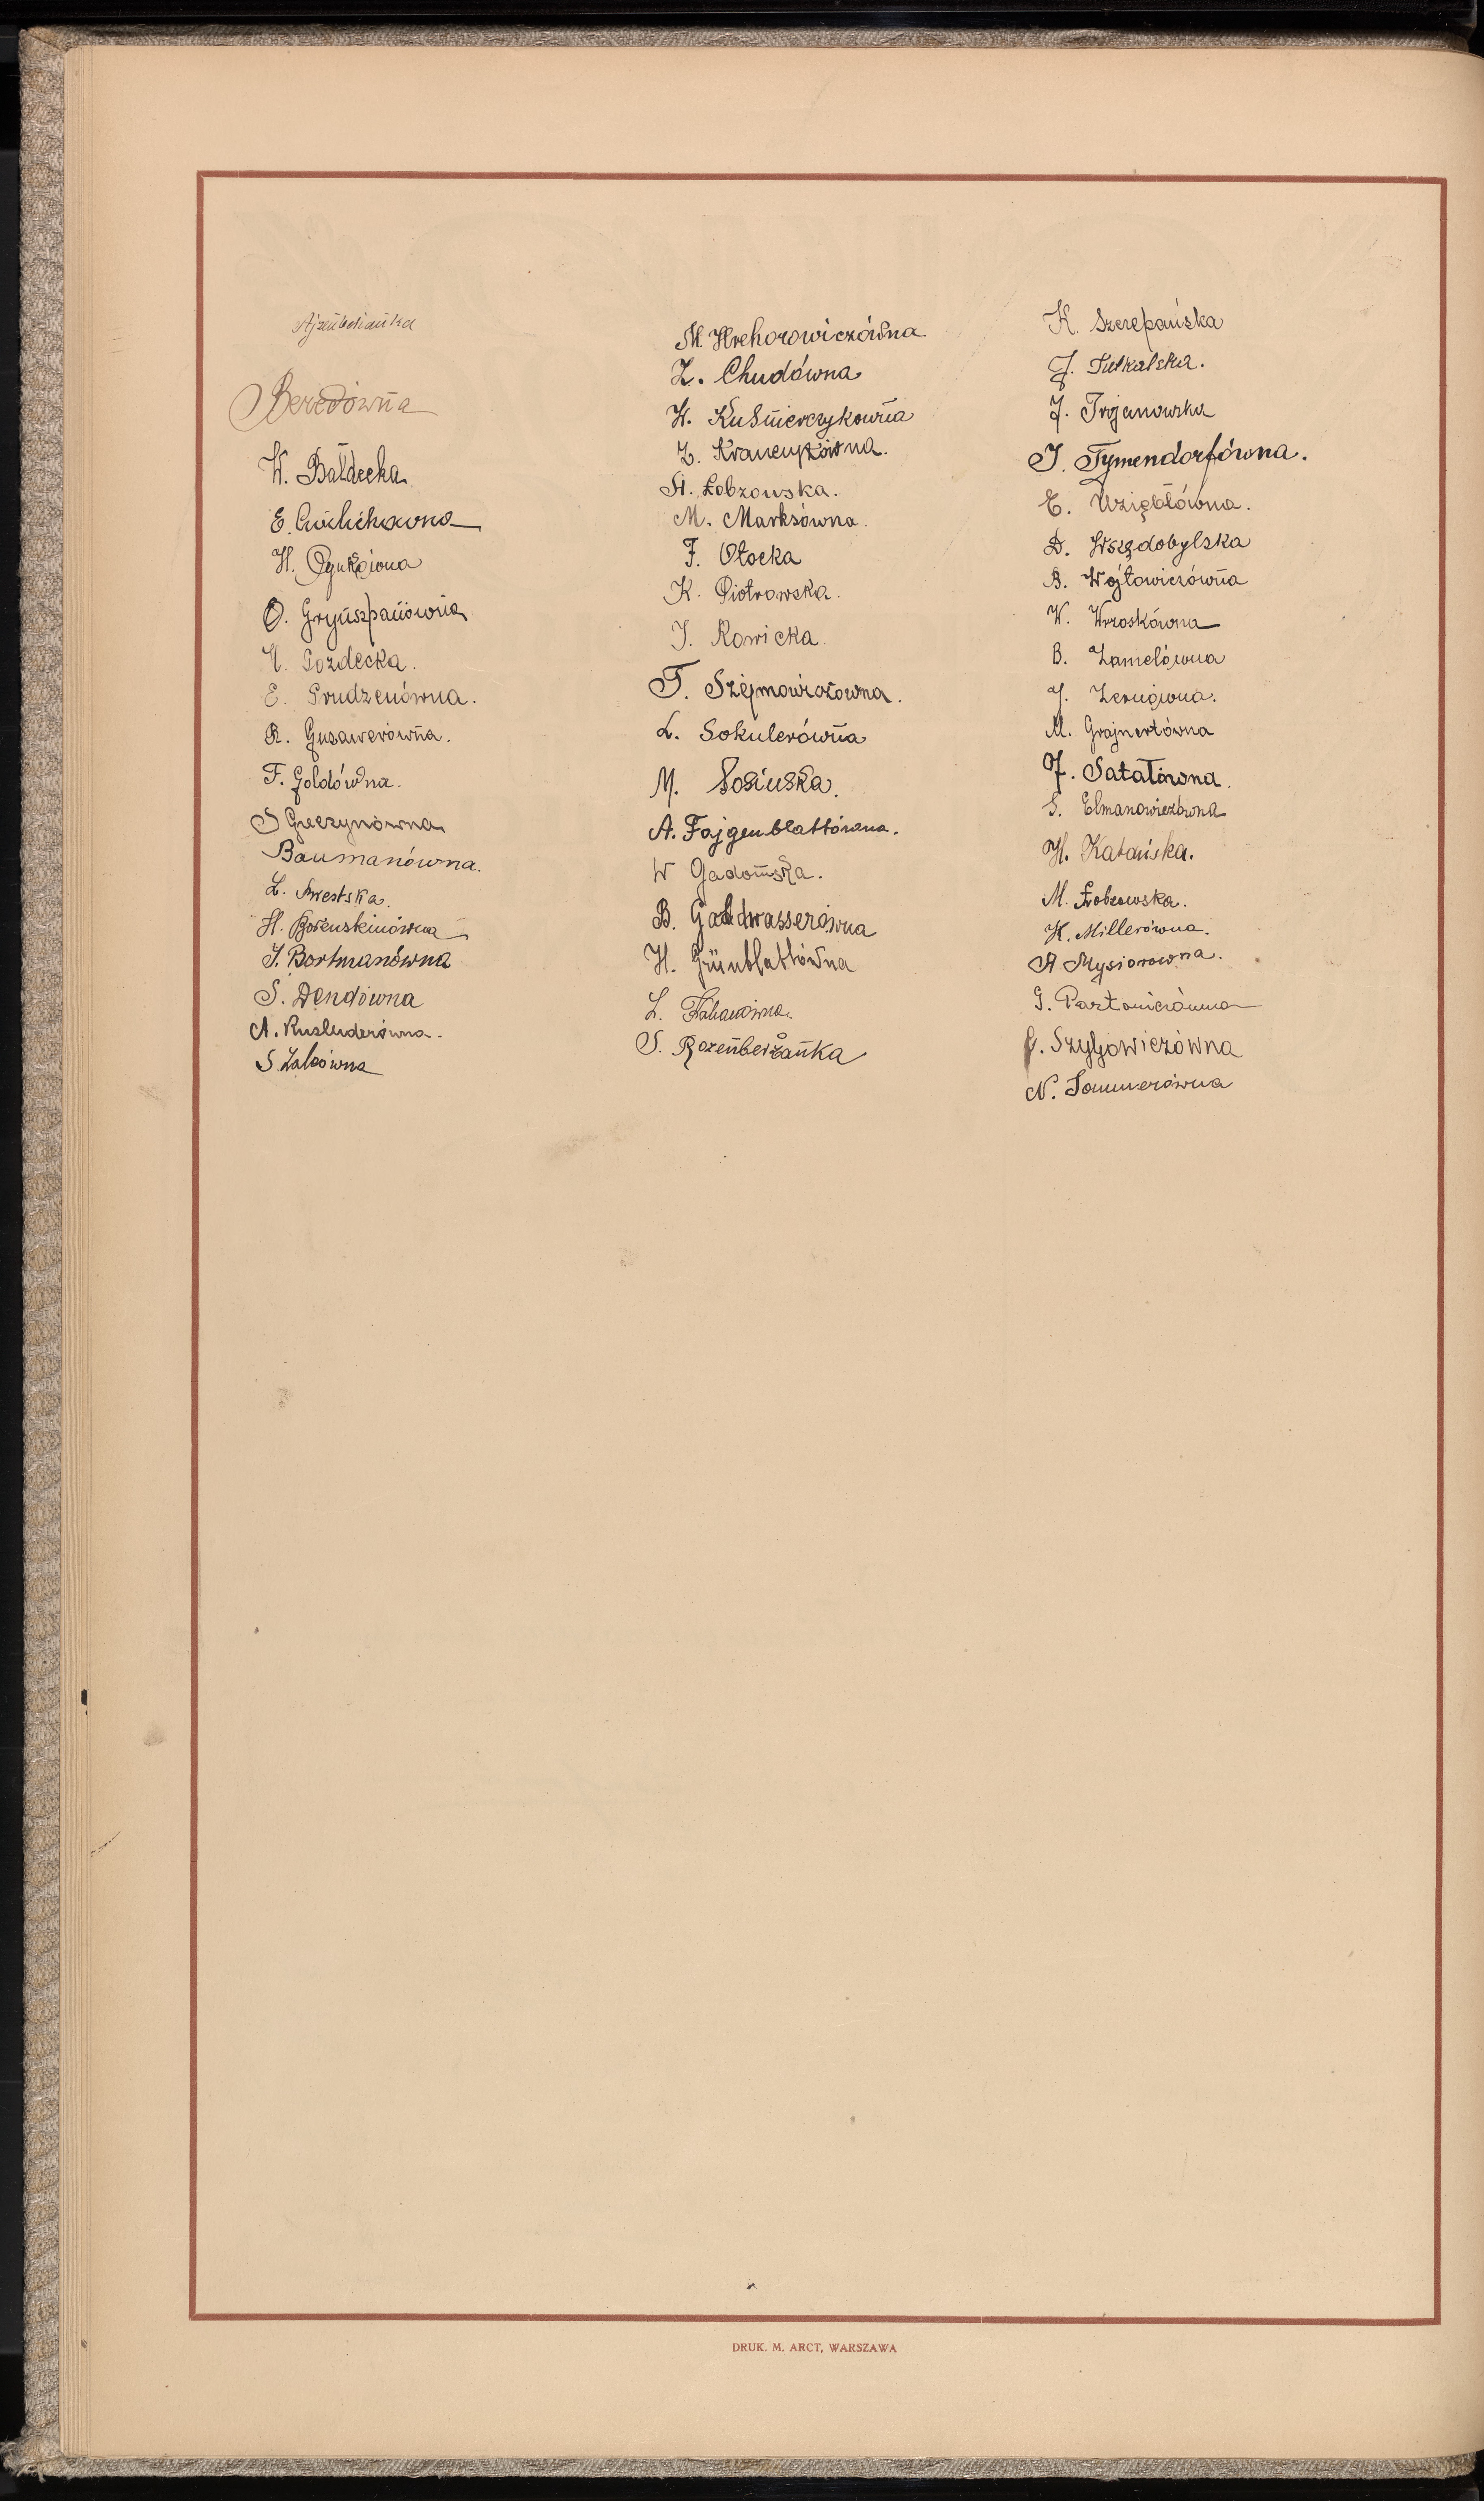 Ajzenbeżanka
Beredówna
W. Bałdecka
E.
H.
O. Grynszpanówna
N. Gozdecka.
E. Grudzenówna.
R. Gusawerówna.
F. Goldówna.
S Gutczynówna
Baumanówna.
L.
H. Borensteinówna
J. Bortmanówna
S. Dendówna
A. Kusluderówna.
S. Zalcówna
M. Hrehorowiczówna
Z. Chudówna
W. Kuśmierczykówna
Z. Krawczykówna.
St. Łobzowska.
M. Marksówna.
F. Otocka
K. Piotrowska.
J. Rowicka.
T. Szejmowiczówna.
L. Sokulerówna
M. Sosińska.
A. Fajgenblattówna.
W Gadomska.
B. Goldwasserówna
H. Grünblattówna
L. Kahanówna.
S. Rozenberżanka
K. Szczepańska
J. Tutkalska.
J. Trojanowska
J. Tymendorfówna.
E. Uzięblówna.
D. Wszędobylska
B. Wójtowiczówna
W. Wrzoskówna
B. Zamelówna
J. Zerugówna.
M. Grajnertówna
J. Satałówna.
S. Elmanowiczówna
H. Katańska.
M. Łobzowska.
H. Millerówna.
A Mysiorowna.
G. Portowiczówna
J. Szyljowiczówna
N. Sommerówna
DRUK. M. ARCT, WARSZAWA